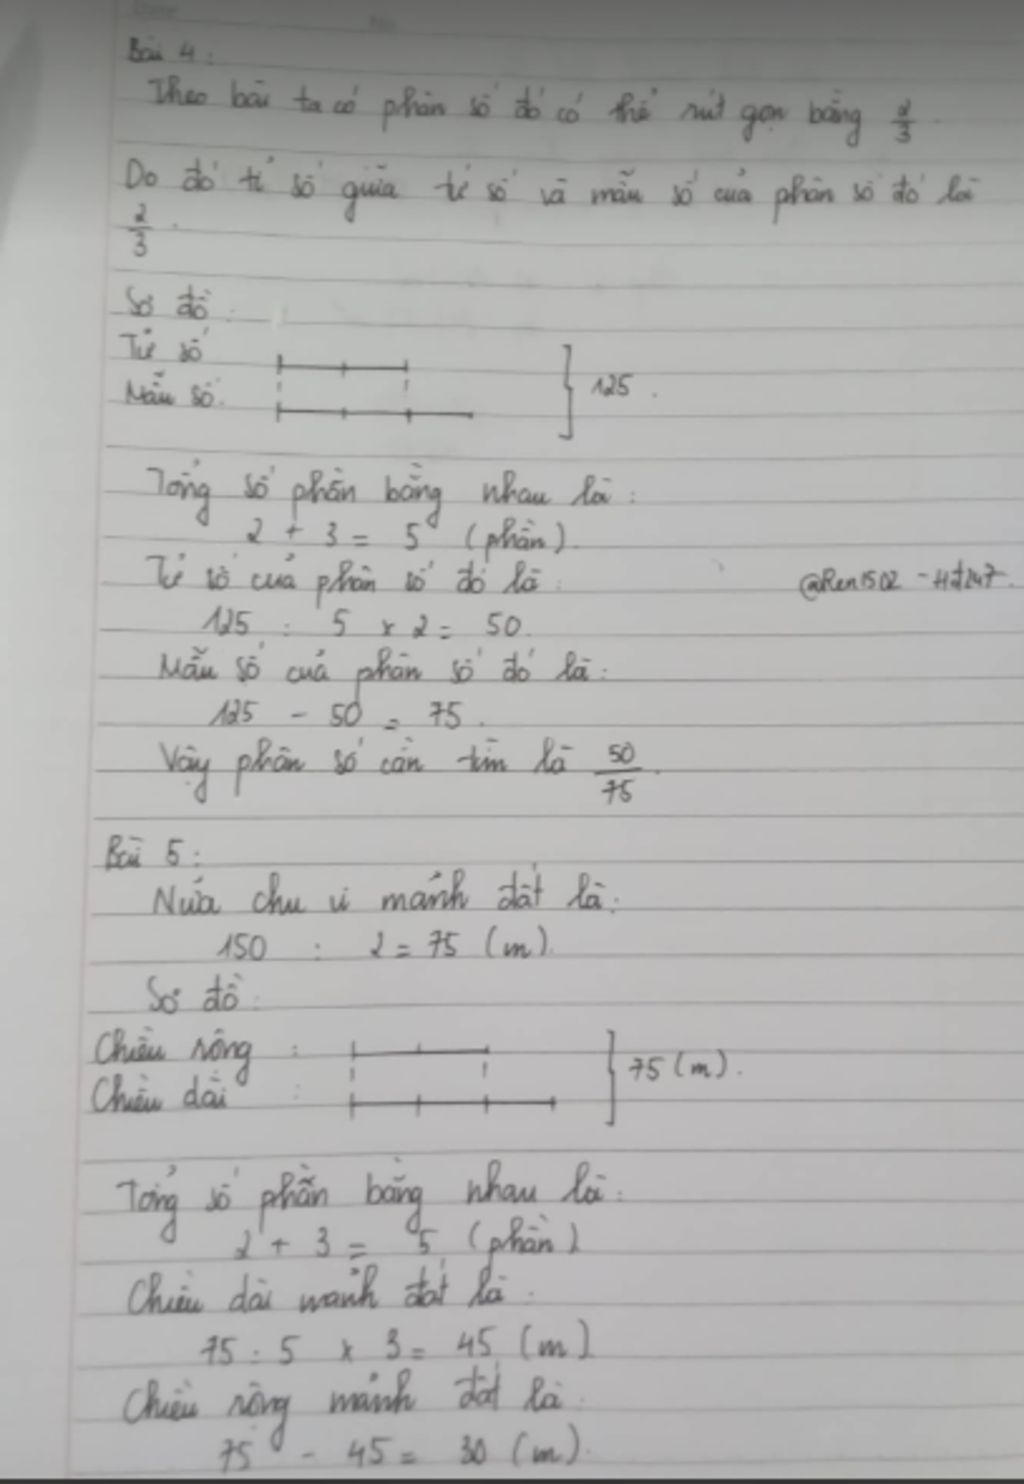 Bài 4:
Theo bài ta có phân số đó có thể rút gọn bằng 2/3.
Do đó tỉ số giữa tử số và mẫu số của phân số đó là
2/3.
Sơ đồ:
Tử số
Mẫu số:
125.
Tổng số phần bằng nhau là:
2 + 3 = 5 (phần).
Tử số của phân số đó là:
@Ren1502 - H7247.
125 : 5 x 2 = 50.
Mẫu số của phân số đó là:
125 - 50 = 75.
Vậy phân số cần tìm là 50/75.
Bài 5:
Nửa chu vi mảnh đất là:
150 : 2 = 75 (m).
Sơ đồ:
Chiều rộng :
Chiều dài :
75 (m).
Tổng số phần bằng nhau là:
2 + 3 = 5 (phần)
Chiều dài mảnh đất là:
75 : 5 x 3 = 45 (m)
Chiều rộng mảnh đất là:
75 - 45 = 30 (m).